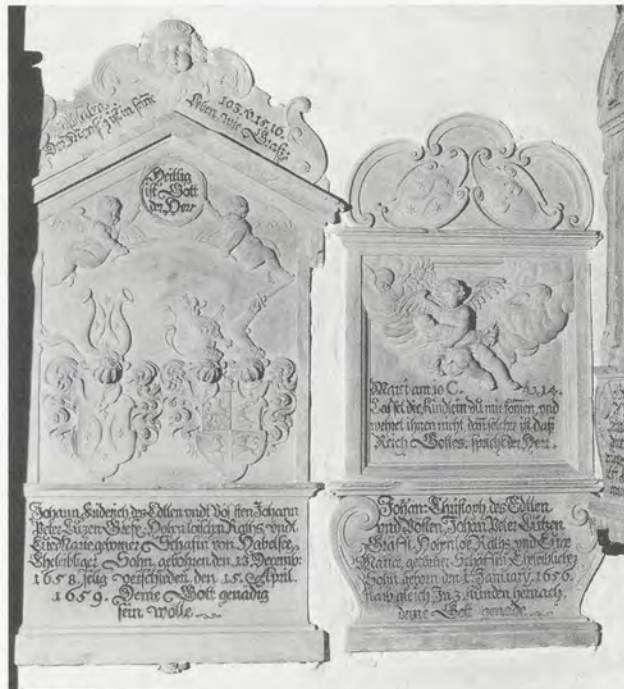 103. v. 15. 16.
Der Mensch ist in seinē
Leben, wie Graß
Heillig
ist Gott
der Herr
Johann Friderich des Edlen vndt Vösten Johann
Peter Lutzen Gräfl: Hohenloischen Raths, vndt
Eua Maria geborner Schäfin von Habelsee
Eheleibliger Sohn, gebohren den 13 Decemb:
1658. seelig verschieden, den 15. April.
1659. Deme Gott genadig
sein wolle
Marci am 10 C. v. 14.
Lasset die Kindlein zu mir komen, vnd
wehret ihnen nicht, dann solcher ist daß
Reich Gottes, spricht der Herr.
Johan: Christoph, des Edllen
vnd Vösten, Johan Peter Lutzen
Gräffl. Hohenloi: Raths, vnd Euæ
Mariæ, geborner Eheleiblicher
Sohn, geborn den 1. January, 1656.
gleich In 3 stunden hernach,
deme Gott genade